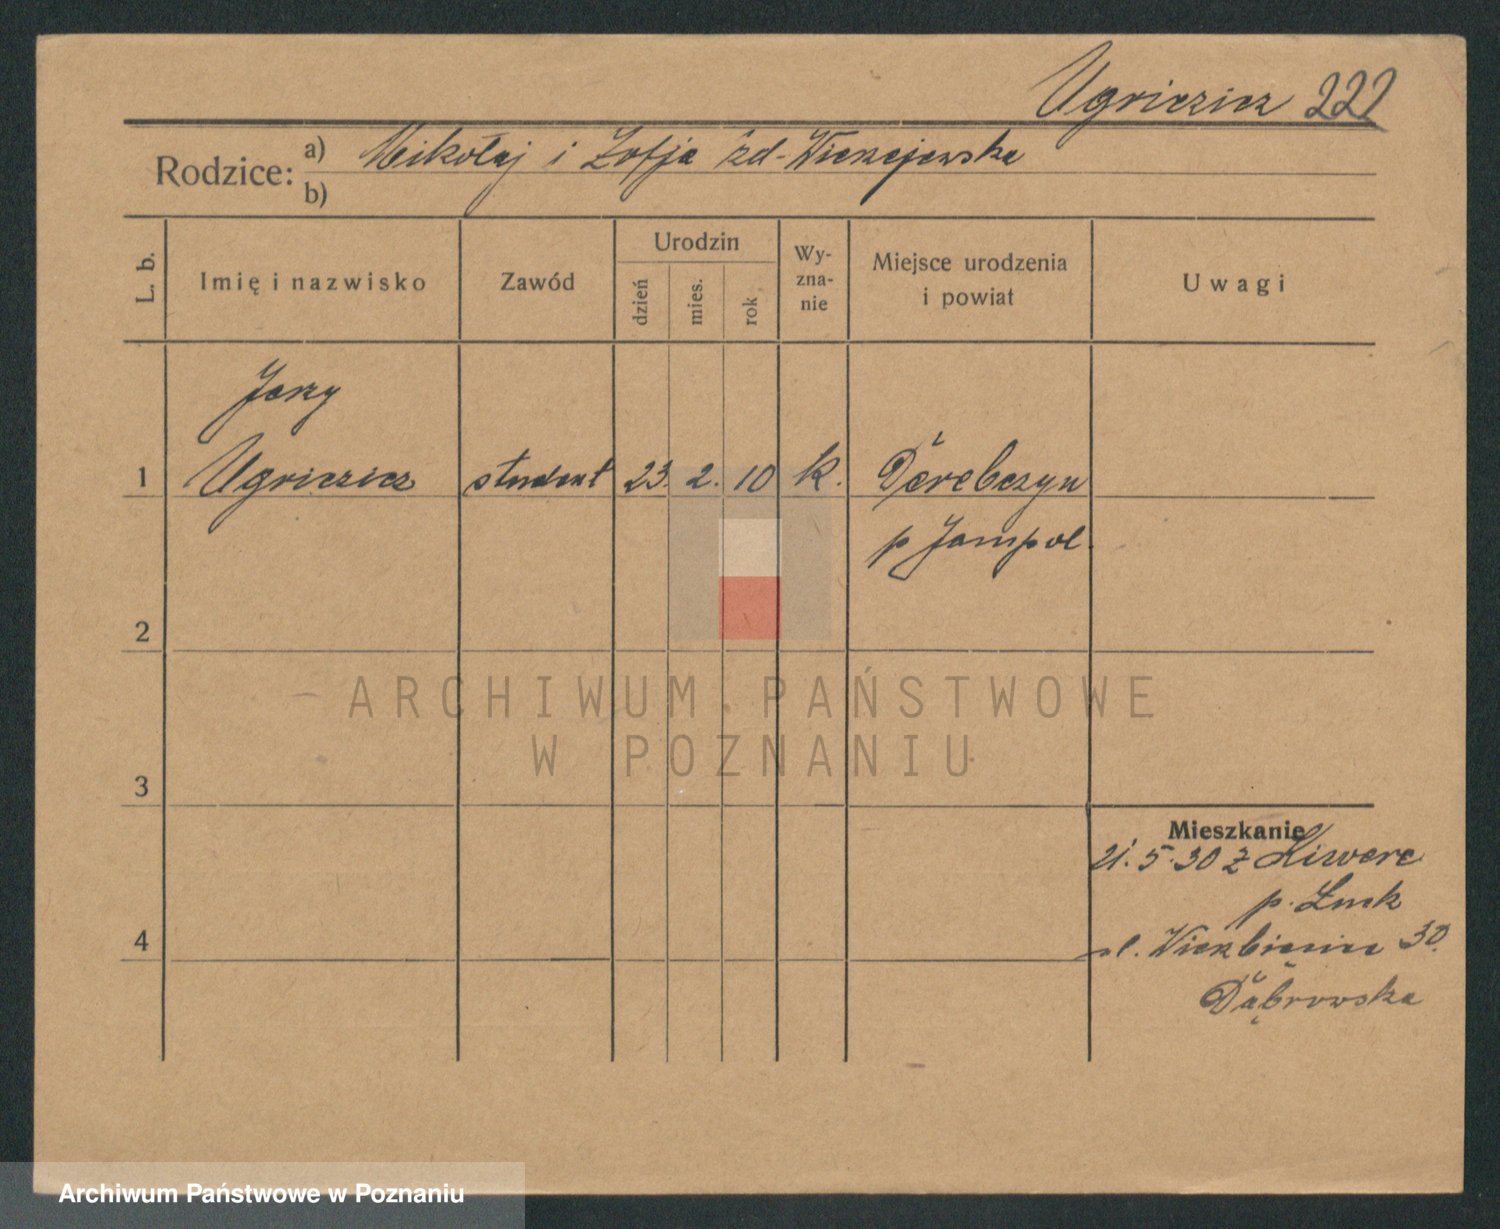 Ugriczicz 222
Rodzice: a) Mikołaj i Zofja
b)
L. b.
Imię i nazwisko
Zawód
Urodzin
dzień
mies.
rok
Wy-
zna-
nie
Miejsce urodzenia
i powiat
Uwagi
Jerzy
1 Ugriczicz student 23. 2. 10 k. Derebczyn
p Jampol.
2
ARCHIWUM PAŃSTWOWE
W POZNANIU
3
Mieszkanie
21. 5. 30 z Kiwerc
p. Łuck
4
ul. Wierzbięcice 30.
Dąbrowska
Archiwum Państwowe w Poznaniu